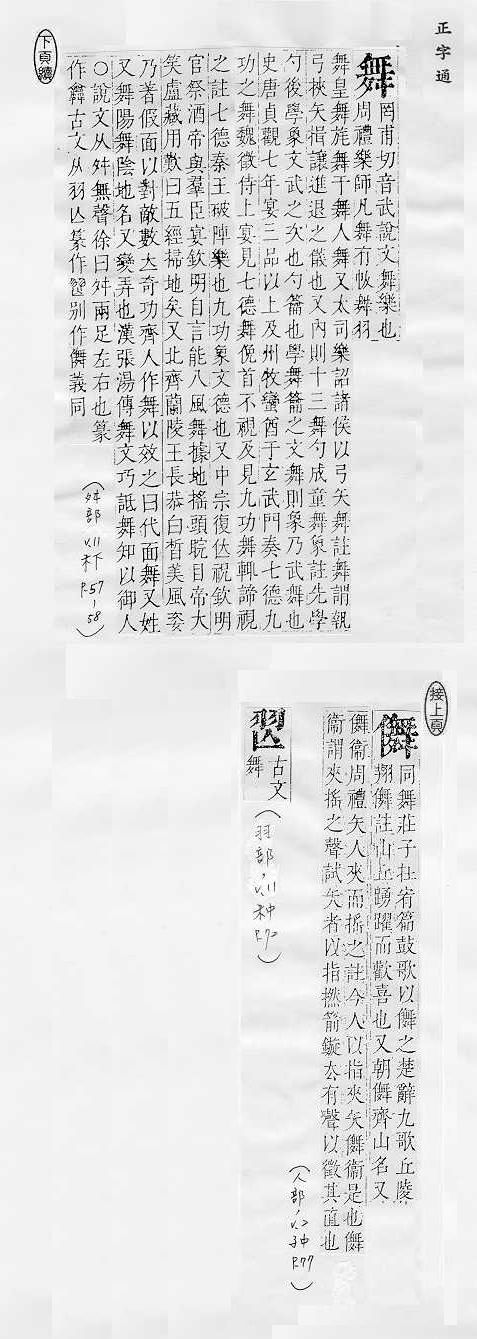 正字通
舞
罔甫切音武說文舞樂也
周禮樂師凡舞有帗舞羽
舞皇舞旄舞干舞人舞又太司樂詔諸侯以弓矢舞註舞謂執
弓挾矢揖讓進退之儀也又內則十三舞勺成童舞象註先學
勺後學象文武之次也勺籥也學舞籥之文舞則象乃武舞也
史唐貞觀七年宴三品以上及州牧蠻酋于玄武門奏七德九
功之舞魏徵侍上宴見七德舞俛首不視及見九功舞輒諦視
之註七德秦王破陣樂也九功象文德也又中宗復位祝欽明
官祭酒帝與羣臣宴欽明自言能八風舞據地搖頭睆目帝大
笑盧藏用歎曰五經掃地矣又北齊蘭陵王長恭白皙美風姿
乃著假面以對敵數立奇功齊人作舞以效之曰代面舞又姓
又舞陽舞陰地名又變弄也漢張湯傳舞文巧詆舞知以御人
○說文从舛無聲徐曰舛兩足左右也篆
作𦏶古文从羽亾篆作𦐀別作儛義同
(舛部 v.11 未下 P.57-58)
下頁續
接上頁
儛
同舞莊子在宥篇鼓歌以儛之楚辭九歌丘陵
翔儛註山丘踴躍而歡喜也又朝儛齊山名又
儛衞周禮矢人夾而搖之註今人以指夾矢儛衞是也儛
衞謂夾搖之聲試矢者以指撚箭鏇去有聲以徵其直也
(人部, v.2 子中 P.77)
𦐀
古文
舞
(羽部, v.11 未中 P.70)